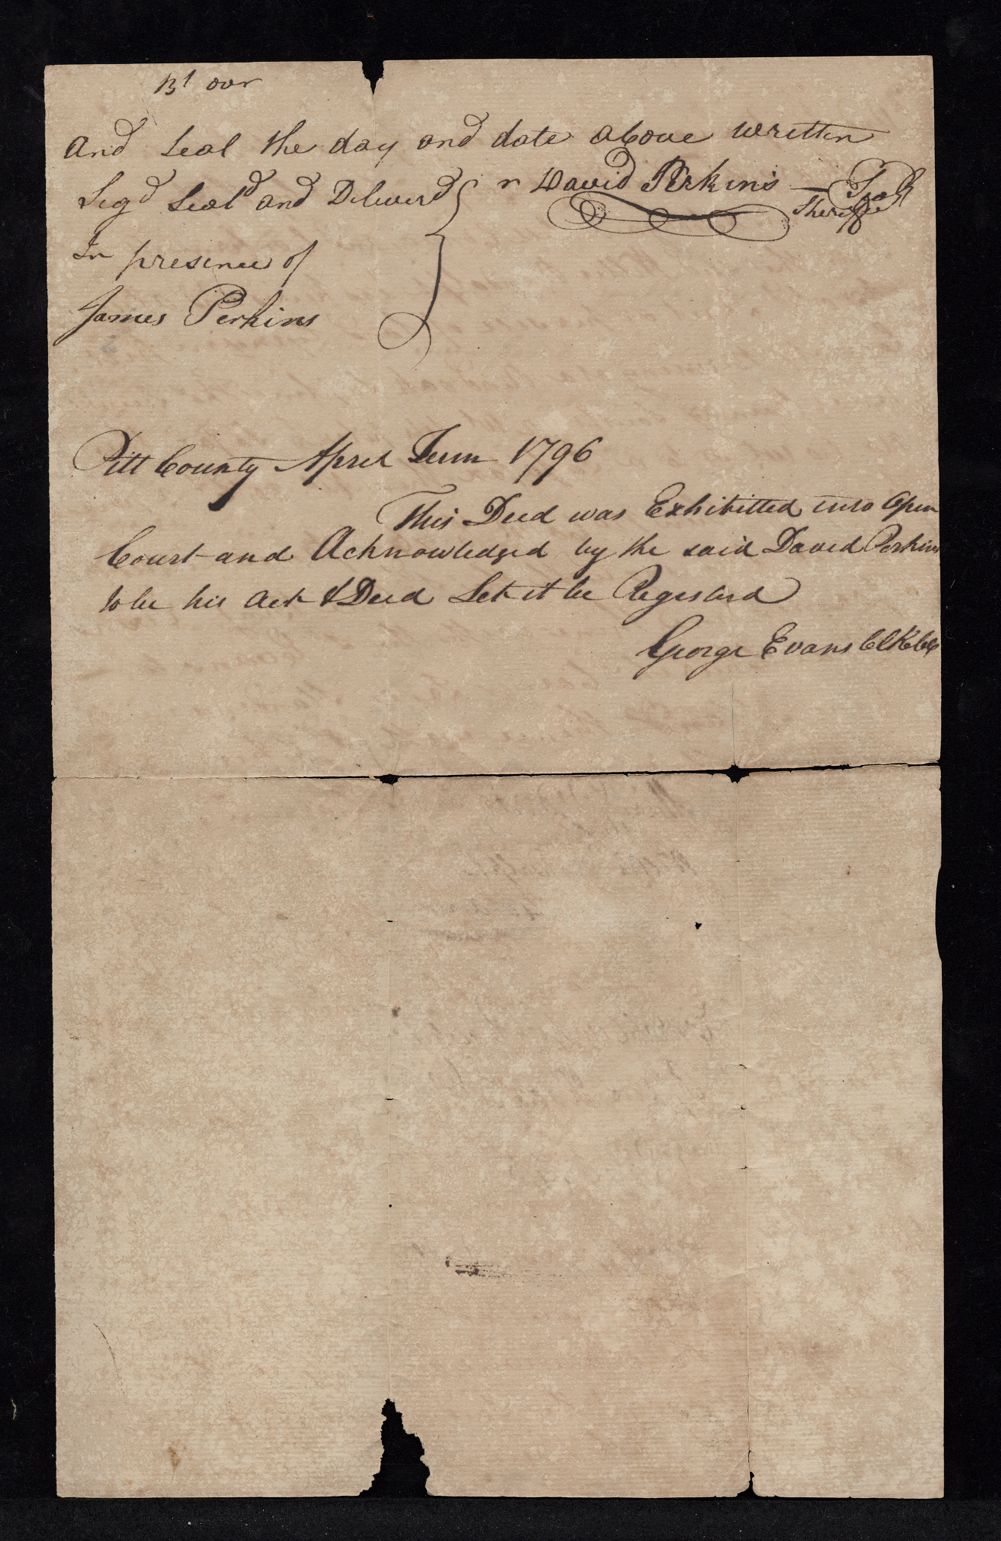 Bt our
And Seal the day and date above written
Sigd Seald and Deliverd David Perkins
Sheriff
In presence of
James Perkins
Pitt County April Term 1796
This Deed was Exhibitted into Open
Court and Acknowledged by the said David Perkins
to be his Act & Deed Let it be Registerd
George Evans